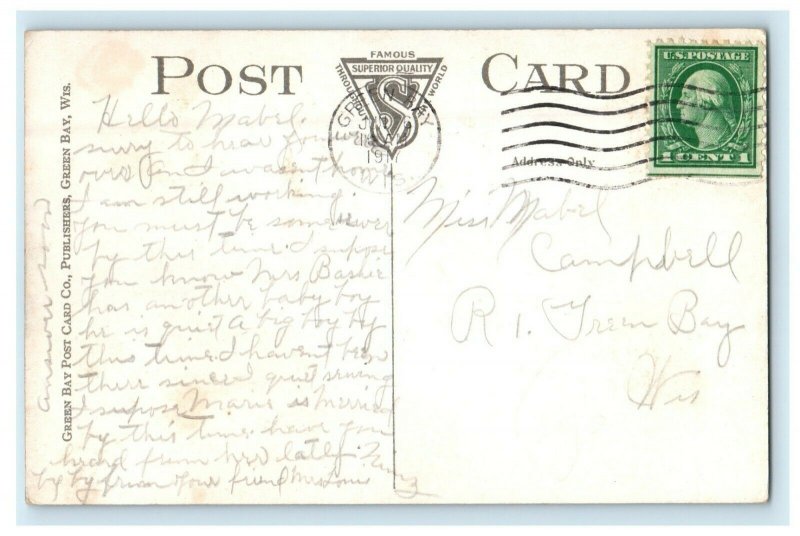 POST CARD
FAMOUS
SUPERIOR QUALITY
THROUGHOUT WORLD
S
GREEN BAY
WIS.
U.S. POSTAGE
1 CENT 1
Address Only
GREEN BAY POST CARD CO., PUBLISHERS, GREEN BAY, WIS.
Hello Mabel.
surry to hear you
over and I wasent home
I am still working.
you must be some sewer
by this time I supose
you know Mrs
has another baby boy
he is quiet a big boy by
this time. I havent been
there since I quiet sewing
I supose Marie is merried
by this time. have you
heard from her latly.
by by from your friend
answer soon
Miss Mabel
Campbell
R 1. Green Bay
Wis